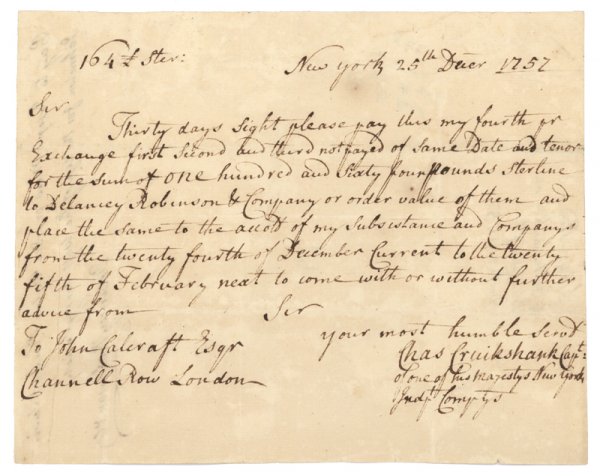 164£ Ster: New York 25th Decer 1757
Sir
Thirty days sight please pay this my fourth pr
Exchange first second and third not payed of same Date and tenor
for the sum of one hundred and sixty four pounds sterline
to Delancey Robinson & Company or order value of them and
place the same to the accot of my Subsistance and Companys
from the twenty fourth of December Current to the twenty
fifth of February next to come with or without further
advice from Sir
your most humble servt
To John Calcraft Esqr
Chas Cruikshank Capt:
Channell Row London
of one of his majestys New York
Indpt Compys